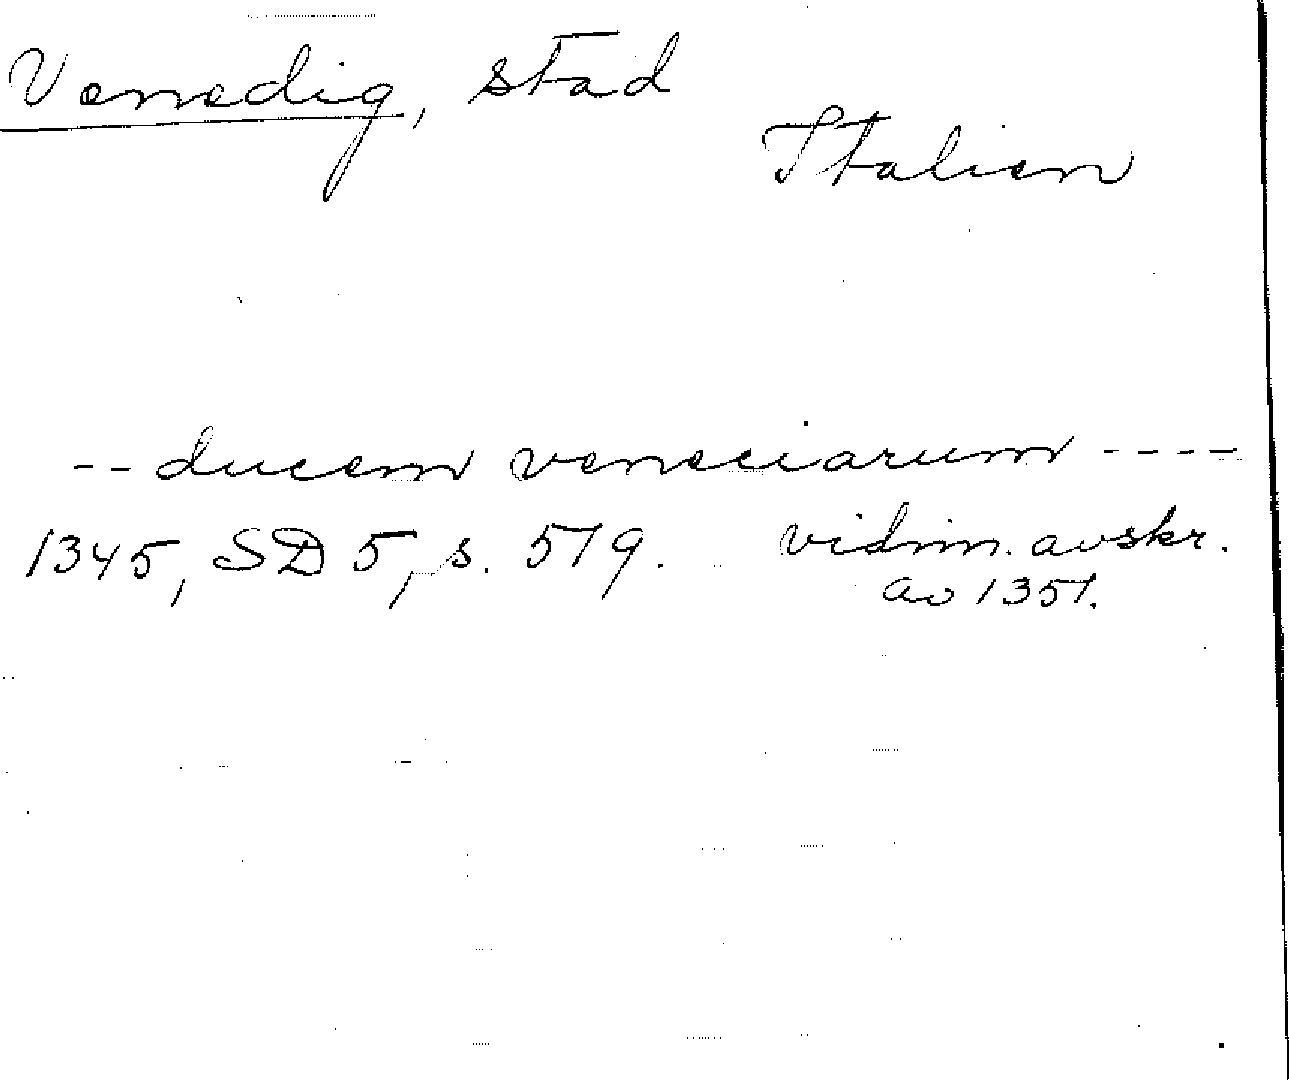 Venedig, stad
Italien
-- ducem veneciarum ----
1345, SD 5, s. 519. vidim. avskr.
av 1351.